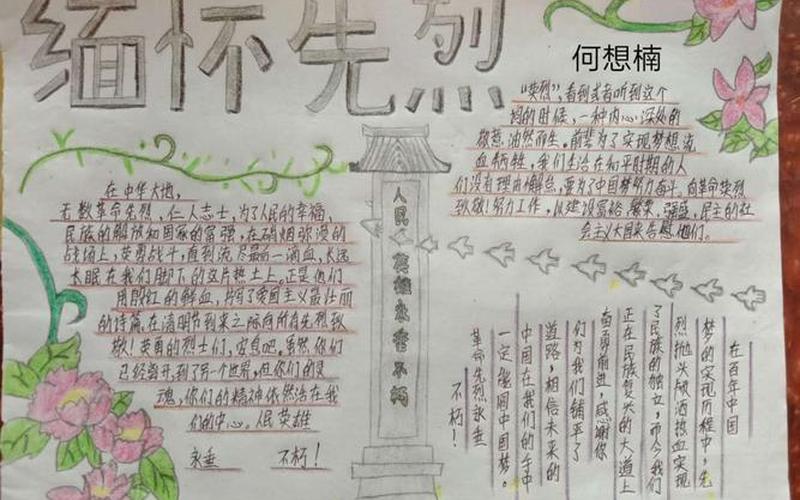 缅怀先烈
何想楠
“英烈”，看到或者听到这个
词的时候，一种内心深处的
敬意，油然而生。前辈为了实现梦想流
血牺牲，我们生活在和平时期的人
们没有理由懈怠，要为了中国梦努力奋斗。向革命英烈
致敬！努力工作，以建设富裕，繁荣，强盛，民主的社
会主义大国来告慰他们。
在中华大地，
无数革命先烈，仁人志士，为了人民的幸福，
民族的解放和国家的富强，在硝烟弥漫的
战场上，英勇战斗，直到流尽最后一滴血，永远
长眠在我们脚下的这片热土上。正是他们
用殷红的鲜血，抒写了爱国主义最壮丽
的诗篇，在清明节到来之际向所有先烈致
敬！英勇的烈士们，安息吧。虽然你们
已经离开到了另一个世界，但你们的灵
魂，你们的精神依然活在我
们的中心。人民英雄
永垂 不朽！
人民英雄永垂不朽
在百年中国
梦的实现历程中，先
烈抛头颅洒热血实现
了民族的独立，而今我们
正在民族复兴的大道上
奋勇前进，感谢你
们为我们铺平了
道路，相信未来的
中国在我们的手中
一定能圆中国梦。
革命先烈永垂
不朽！